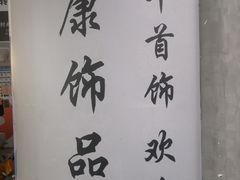 康饰品
首饰欢